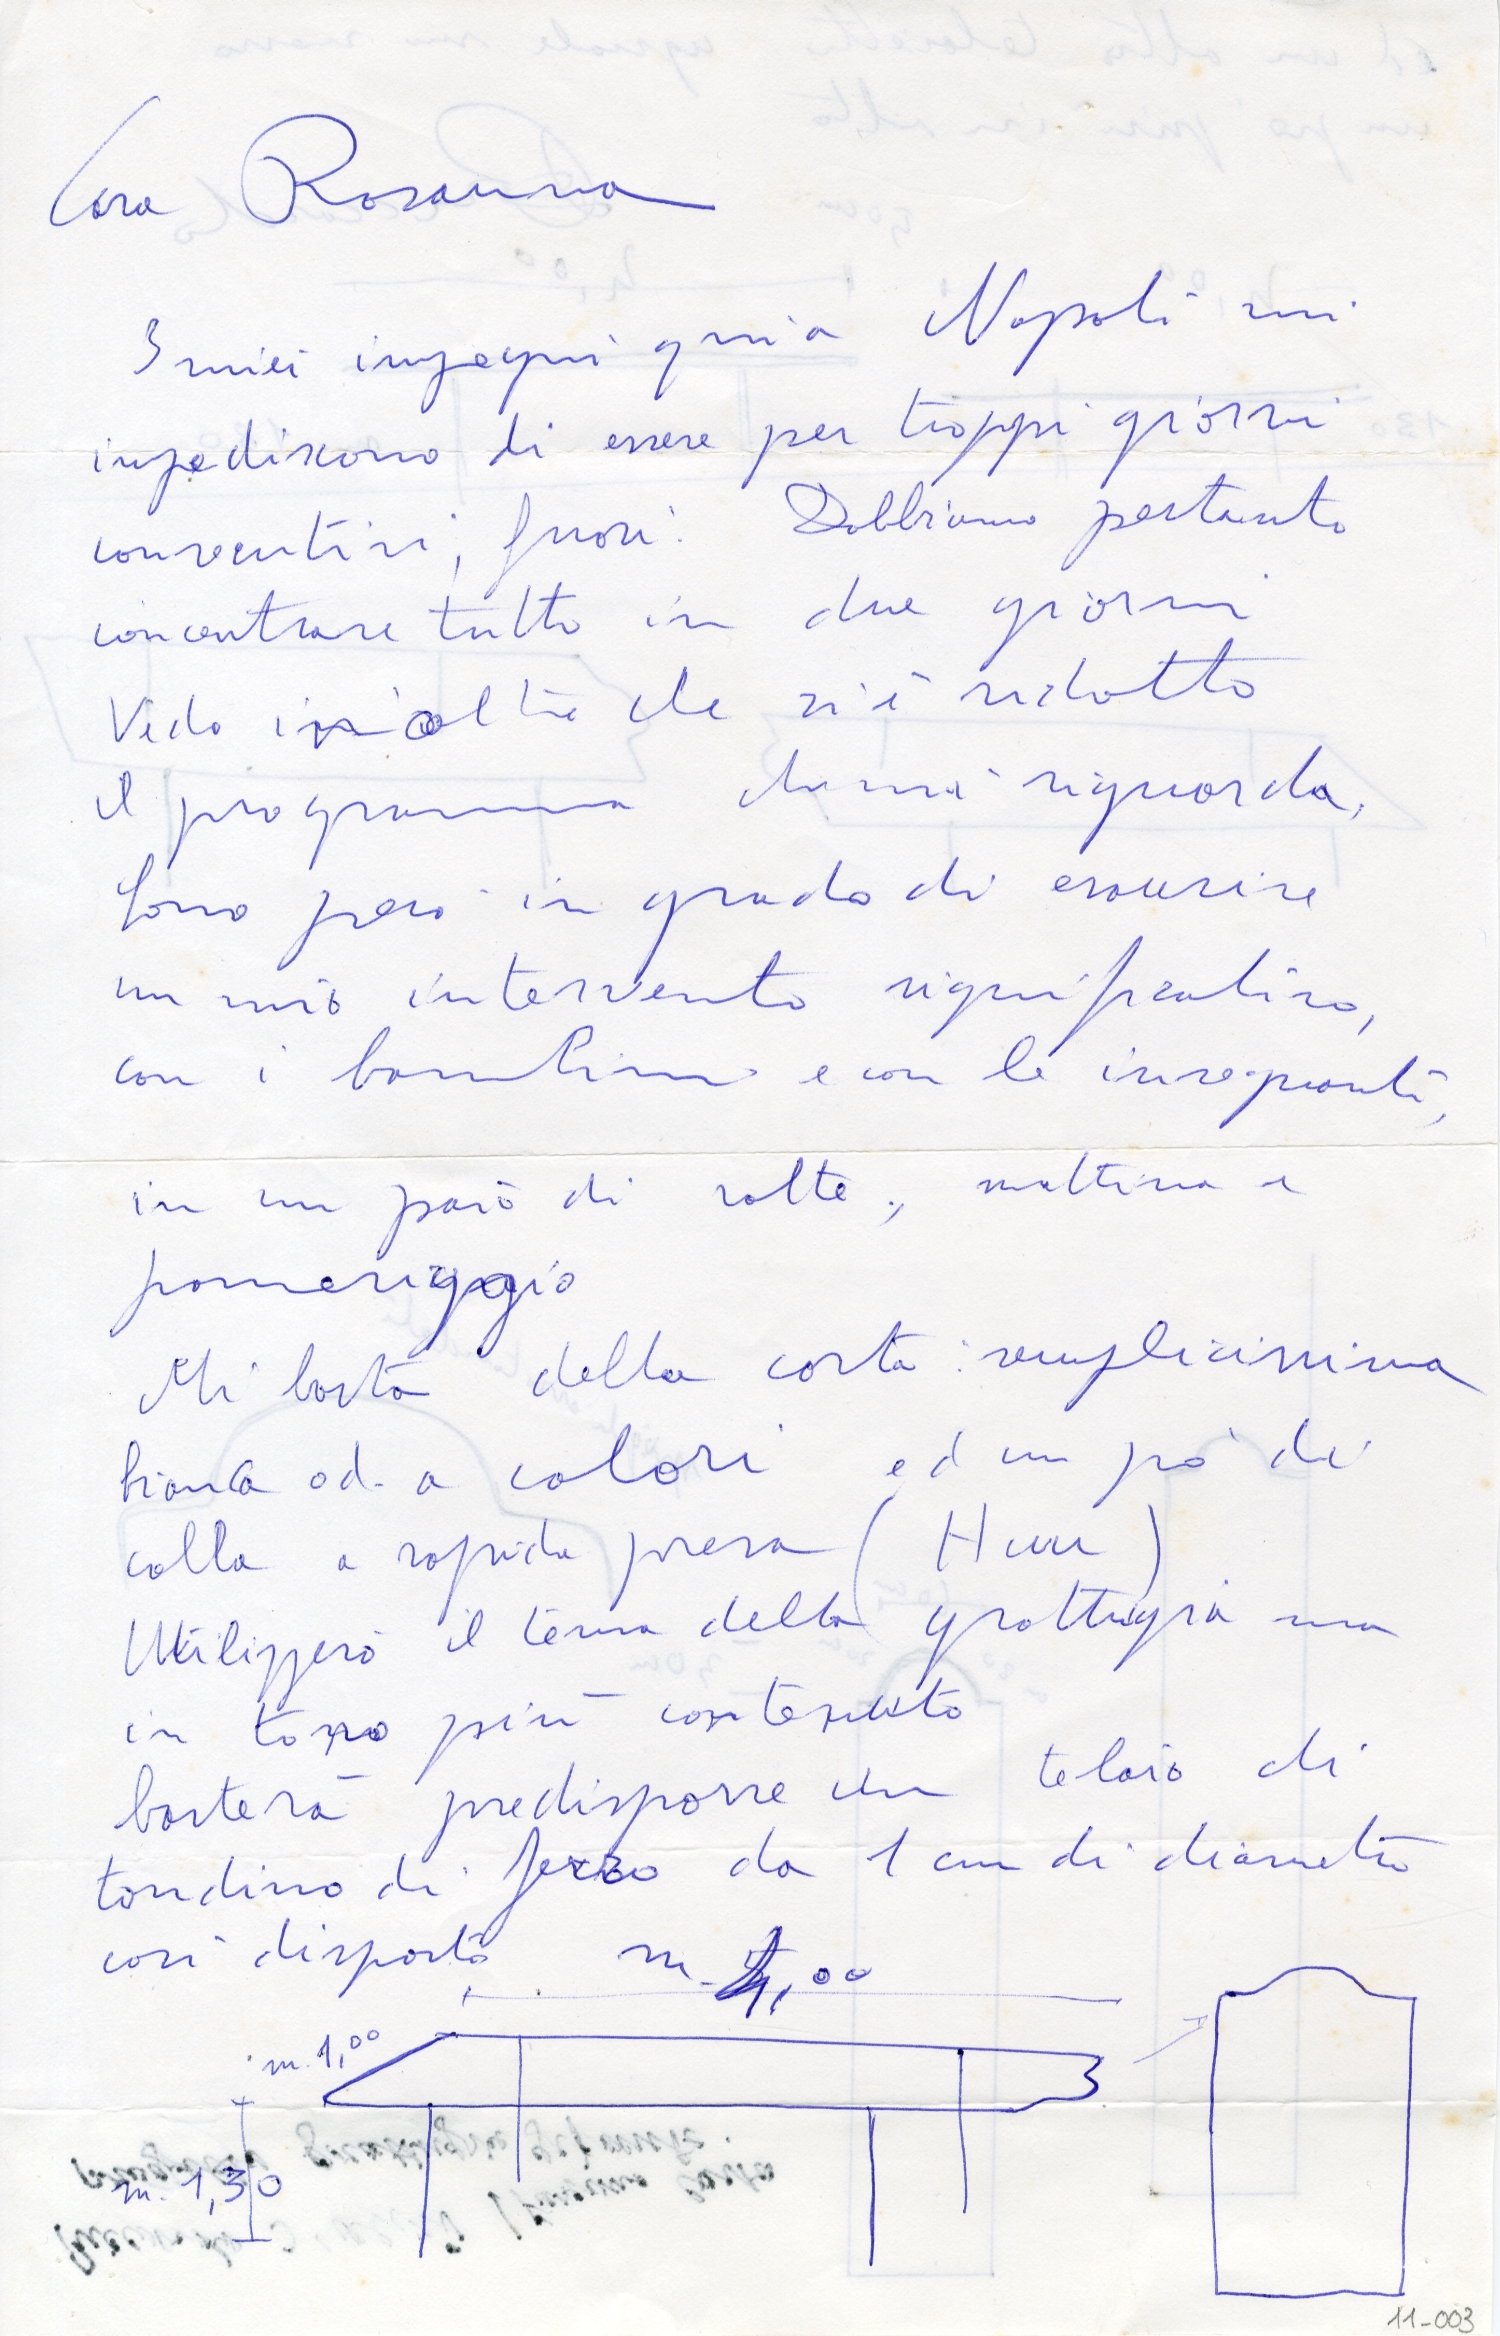 Cara Rosanna
I miei impegni qui a Napoli mi
impediscono di essere per troppi giorni
consecutivi, fuori. Dobbiamo pertanto
concentrare tutto in due giorni
Vedo inoltre che si è ridotto
il programma che mi riguarda.
Sono però in grado di esaurire
un mio intervento significativo,
con i bambini e con le insegnanti,
in un paio di volte, mattina e
pomeriggio
Mi basta della carta semplicissima
bianca od a colori ed un pò di
colla a rapida presa (            )
Utilizzerò il tema della grattugia ma
in tono più contenuto
basterà predisporre un telaio di
tondino di ferro da 1 cm di diametro
così disposto m. 4,00
m. 1,00
m. 1,30
11-003